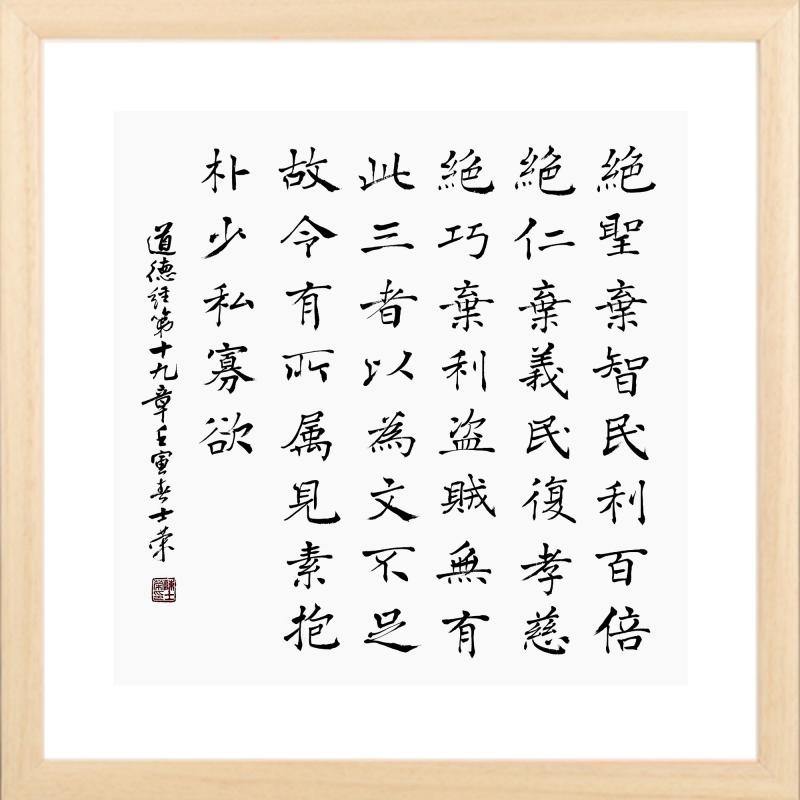 絕聖棄智民利百倍
絕仁棄義民復孝慈
絕巧棄利盜賊無有
此三者以為文不足
故令有所属見素抱
朴少私寡欲
道德經第十九章壬寅春士荣